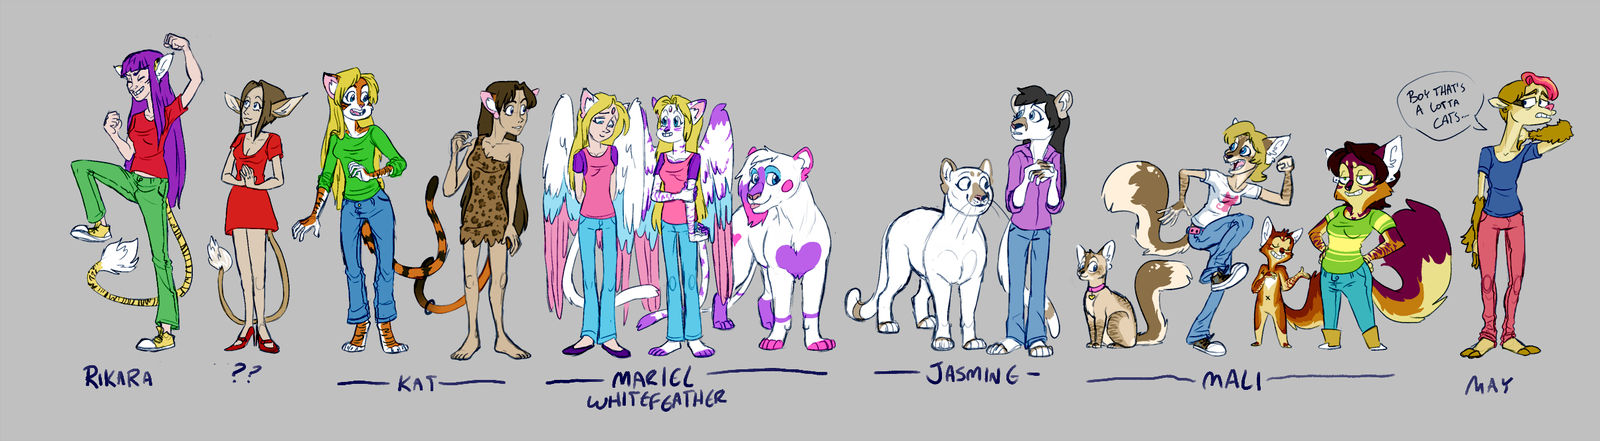 BOY THAT'S
A LOTTA
CATS...
RIKARA
??
KAT
MARIEL
WHITEFEATHER
JASMINE
MALI
MAY